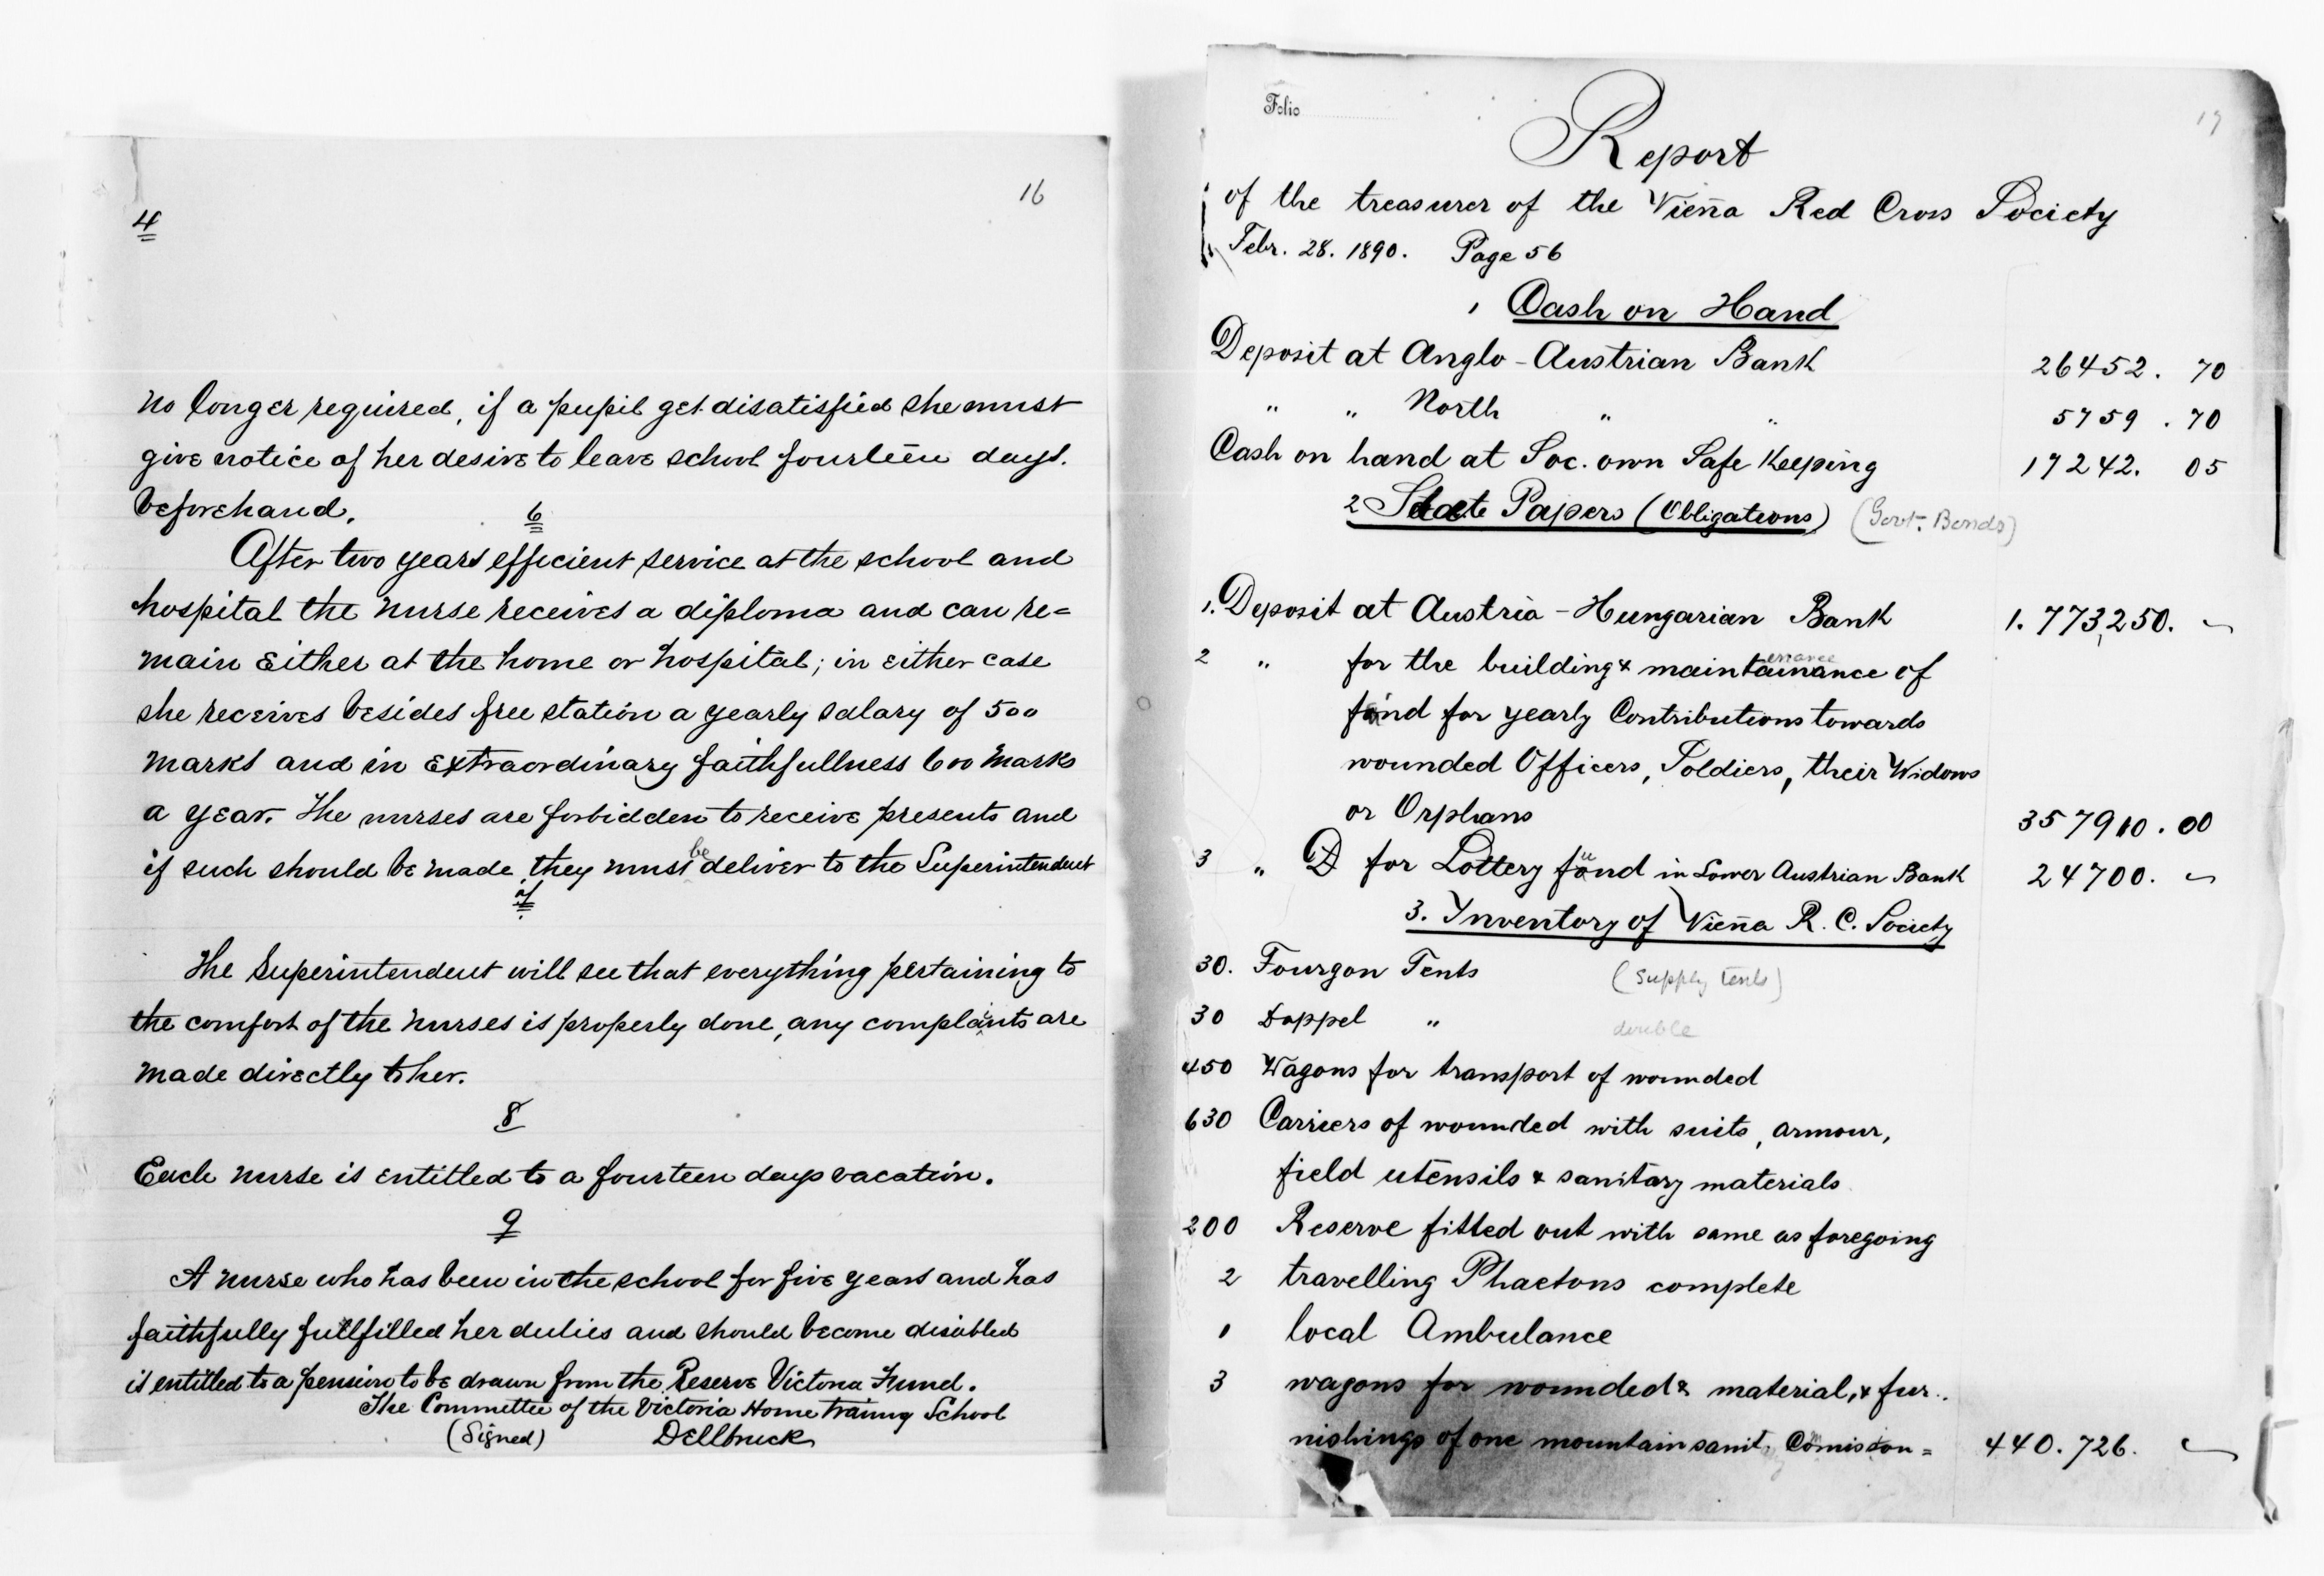 16
4
no longer required, if a pupil get disatisfied she must
give notice of her desire to leave school fourteen days.
beforehand.
6
After two years efficient service at the school and
hospital the nurse receives a diploma and can re=
main either at the home or hospital; in either case
she receives besides free station a yearly salary of 500
marks and in extraordinary faithfullness 600 marks
a year. The nurses are forbidden to receive presents and
if such should be made they must be deliver to the Superintendent
The Superintendent will see that everything pertaining to
the comfort of the nurses is properly done, any complaints are
made directly to her.
8
Each nurse is entitled to a fourteen days vacation.
9
A nurse who has been in the school for five years and has
faithfully fullfilled her duties and should become disabled
is entitled to a pension to be drawn from the Reserve Victoria Fund.
The Committee of the Victoria Home Traing School
(Signed) Dellbruck
Folio
Report
of the treasurer of the Viena Red Cross Society
Febr. 28. 1890. Page 56
1 Cash on Hand
Deposit at Anglo-Austrian Bank 26452. 70
" " North " " 5759. 70
Cash on hand at Soc. own Safe Keeping 17242. 05
2 State Papers (Obligations) (Govt. Bonds)
1. Deposit at Austria-Hungarian Bank 1.773,250. ~
2 " for the building & maintainance of
fund for yearly Contributions towards
wounded Officers, Soldiers, their Widows
or Orphans 357910.00
3 " D for Lottery fund in Lower Austrian Bank 24700. ~
3. Inventory of Viena R. C. Society
30. Fourgon Tents (Supply tents)
30 Doppel " double
450 Wagons for transport of wounded
630 Carriers of wounded with suits, armour,
field utensils & sanitary materials
200 Reserve fitted out with same as foregoing
2 travelling Phaetons complete
1 local Ambulance
3 wagons for wounded & material, & fur..
nishings of one mountain sanit. Comission = 440.726. ~